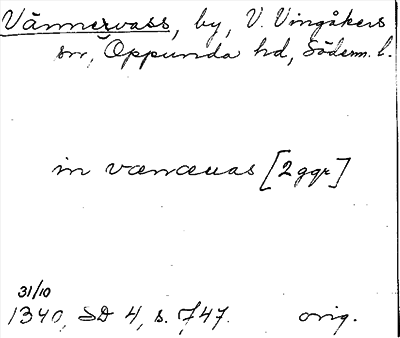 Vännervass, by, V. Vingåkers
sn, Oppunda hd, Söderm. l.
in vænæuas [2 ggr]
31/10
1340, SD 4, s. 747. orig.